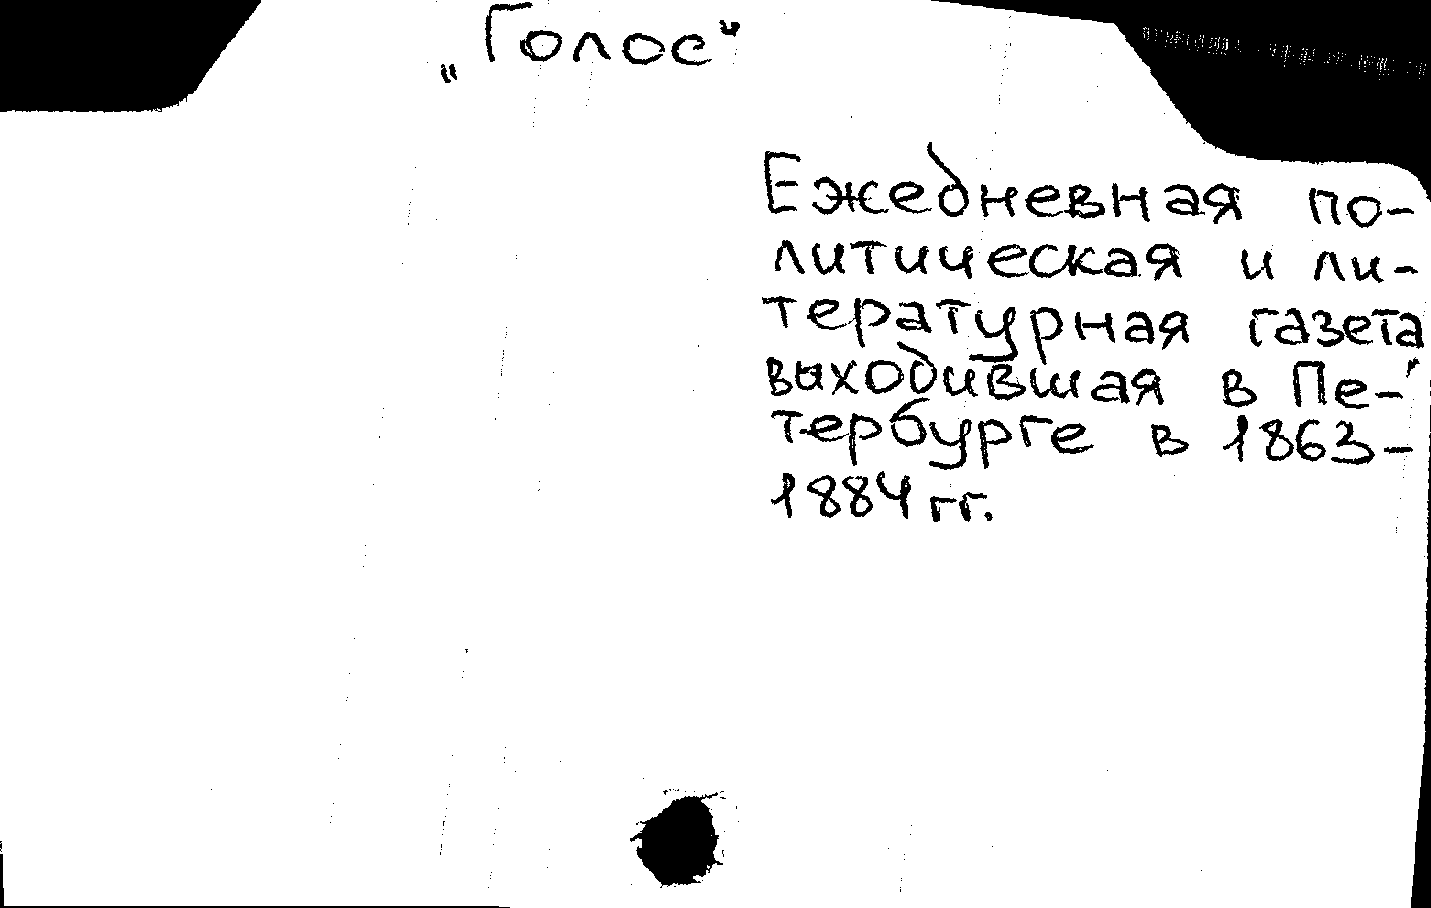 „Голос"
Ежедневная по-
литическая и ли-
тературная газета
выходившая в Пе-
тербурге в 1863-
1884 гг.